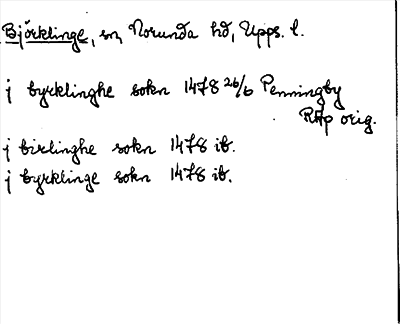 Björklinge, sn, Norunda hd, Upps. l.
j byrklinghe sokn 1478 26/6 Penningby
RAp orig.
j birlinghe sokn 1478 ib.
j byrklinge sokn 1478 ib.